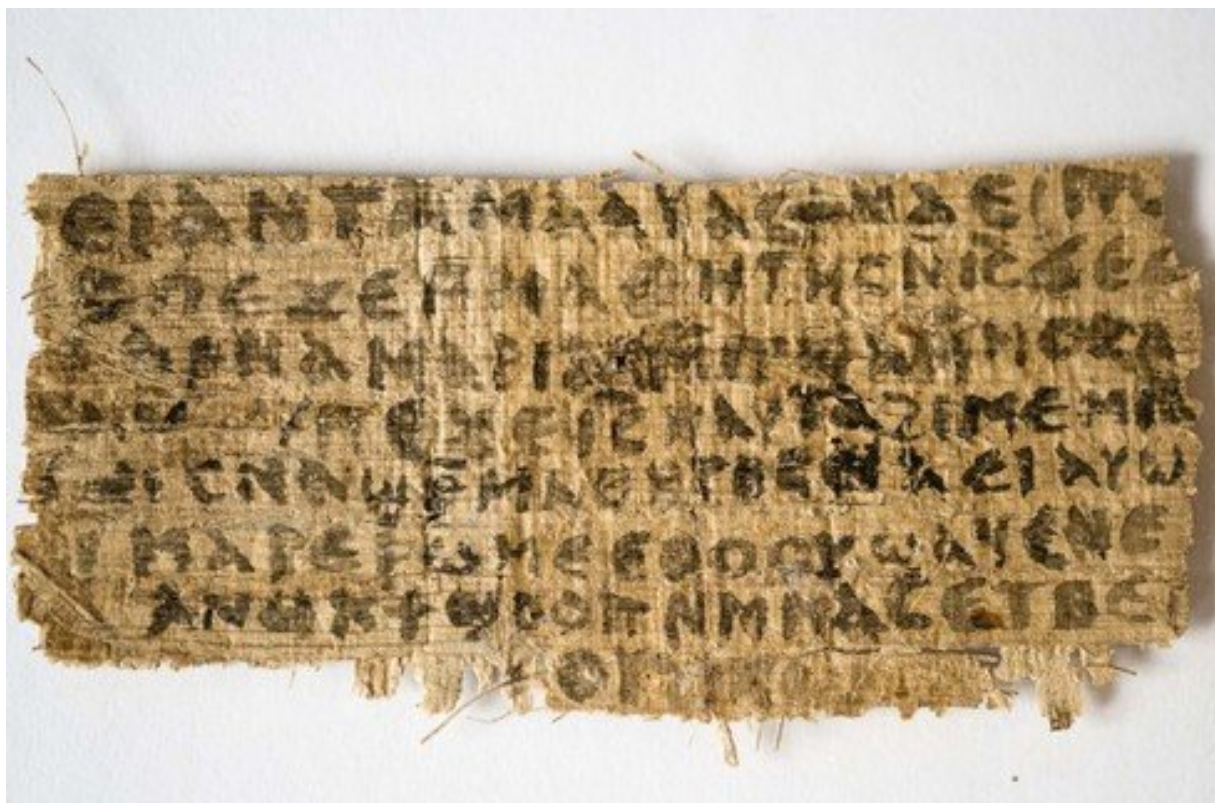 ⲉⲓ ⲁⲛ ⲧⲁⲙⲁⲁⲩ ⲁⲥϯ ⲛⲁⲉⲓ ⲡⲱ
ⲥ ⲡⲉϫⲉ ⲙⲙⲁⲑⲏⲧⲏⲥ ⲛⲓ̅ⲥ̅ ϫⲉ
ⲁⲣⲛⲁ ⲙⲁⲣⲓⲁⲙ ⲙⲡϣⲁ ⲙⲙⲟⲥ ⲁ
ⲡⲉϫⲉ ⲓ̅ⲥ̅ ⲛⲁⲩ ⲧⲁϩⲓⲙⲉ ⲙⲛ
ⲥⲛⲁϣⲣⲙⲁⲑⲏⲧⲏⲥ ⲛⲁⲉⲓ ⲁⲩⲱ
ⲓ ⲙⲁⲣⲉⲣⲱⲙⲉ ⲉⲑⲟⲟⲩ ϣⲁϥⲉ ⲛⲉ
ⲁⲛⲟⲕ ϯϣⲟⲟⲡ ⲛⲙⲙⲁⲥ ⲉⲧⲃⲉ